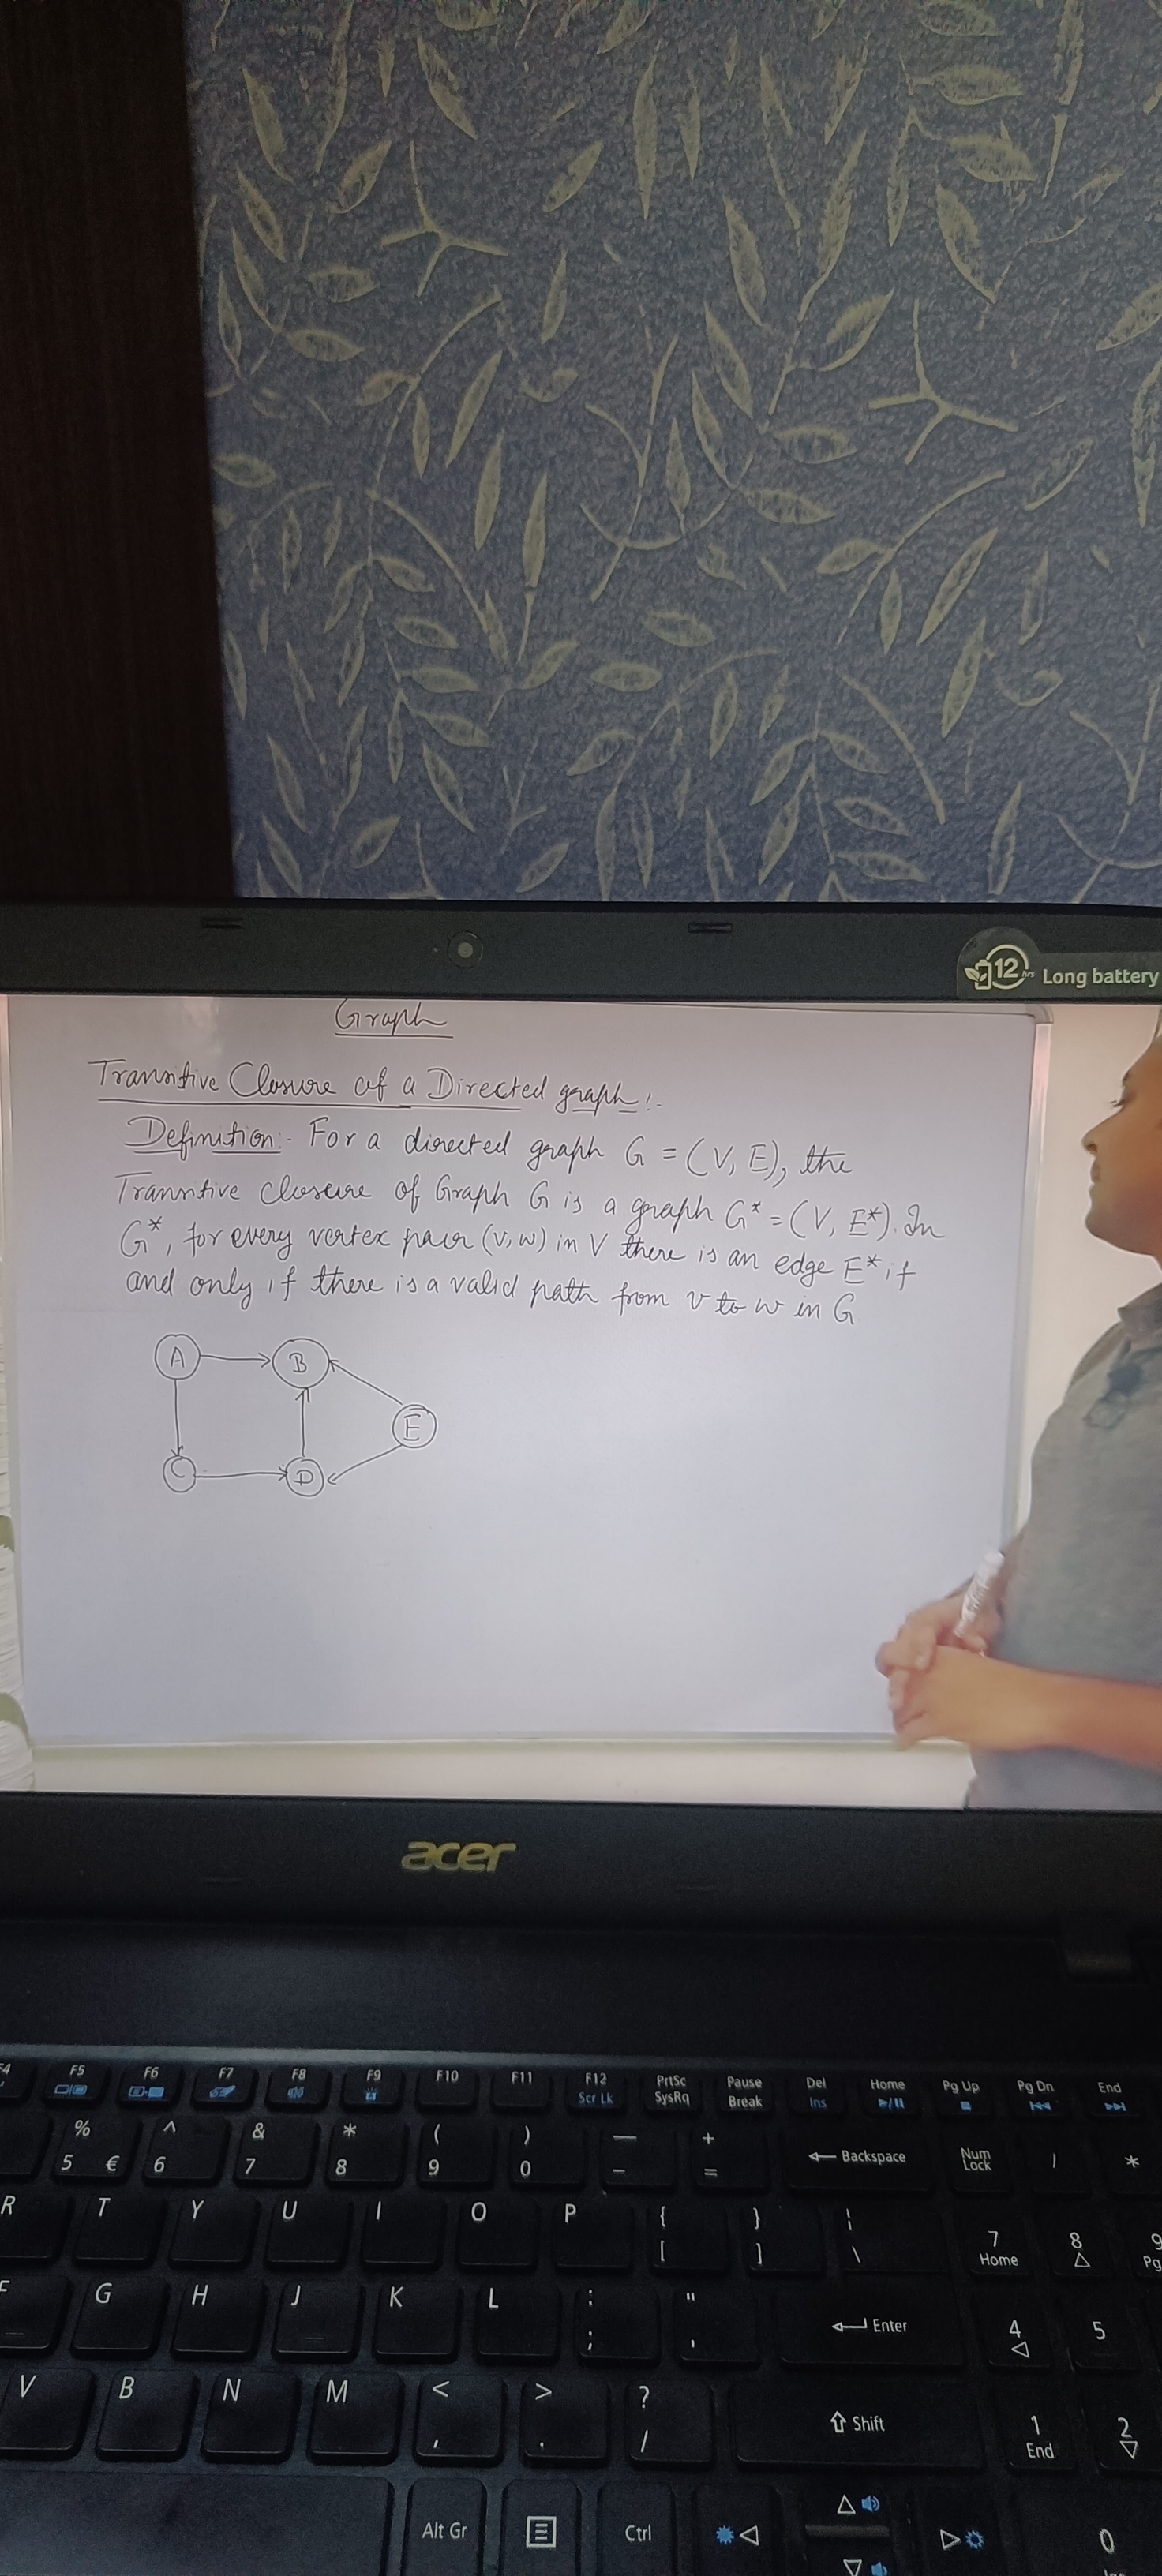 12 hrs Long battery
Graph
Transitive Closure of a Directed graph:-
Definition:- For a directed graph G = (V, E), the
Transitive closure of Graph G is a graph G* = (V, E*). In
G*, for every vertex pair (v, w) in V there is an edge E* if
and only if there is a valid path from v to w in G.
A B
E
C D
acer
F4 F5 F6 F7 F8 F9 F10 F11 F12 PrtSc Pause Del Home Pg Up Pg Dn End
Scr Lk SysRq Break Ins
% ^ & * ( ) — +
5 € 6 7 8 9 0 - = ← Backspace Num Lock / *
R T Y U I O P { } ¦ 7 8 9
[ ] \ Home Pg
F G H J K L : " ↵ Enter 4 5
; '
V B N M < > ? ⇧ Shift 1 2
, . / End
Alt Gr Ctrl 0